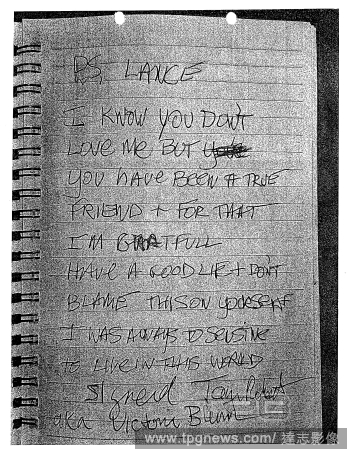 P.S. LANCE
I KNOW YOU DON'T
LOVE ME BUT
YOU HAVE BEEN A TRUE
FRIEND + FOR THAT
I'M GRATFULL
HAVE A GOOD LIFE + DON'T
BLAME THIS ON YOURSELF
I WAS AWAYS TO SENSTIVE
TO LIVE IN THIS WORLD
Signed
aka Victoria
www.tpgnews.com/ 達志影像